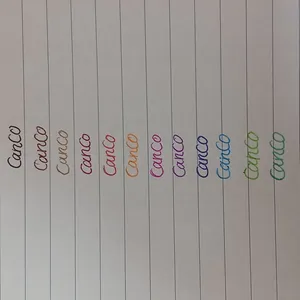 CanCo
CanCo
CanCo
CanCo
CanCo
CanCo
CanCo
CanCo
CanCo
CanCo
CanCo
CanCo